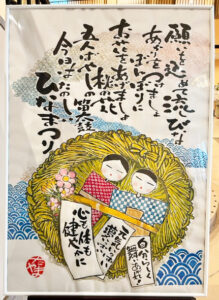 願いを込めて流しびな
あかりをつけましょ
ぼんぼりに
お花をあげましょ
桃の花
五人ばやしの笛太鼓
今日はたのしい
ひなまつり
自分らしく
心も体も
健やかに